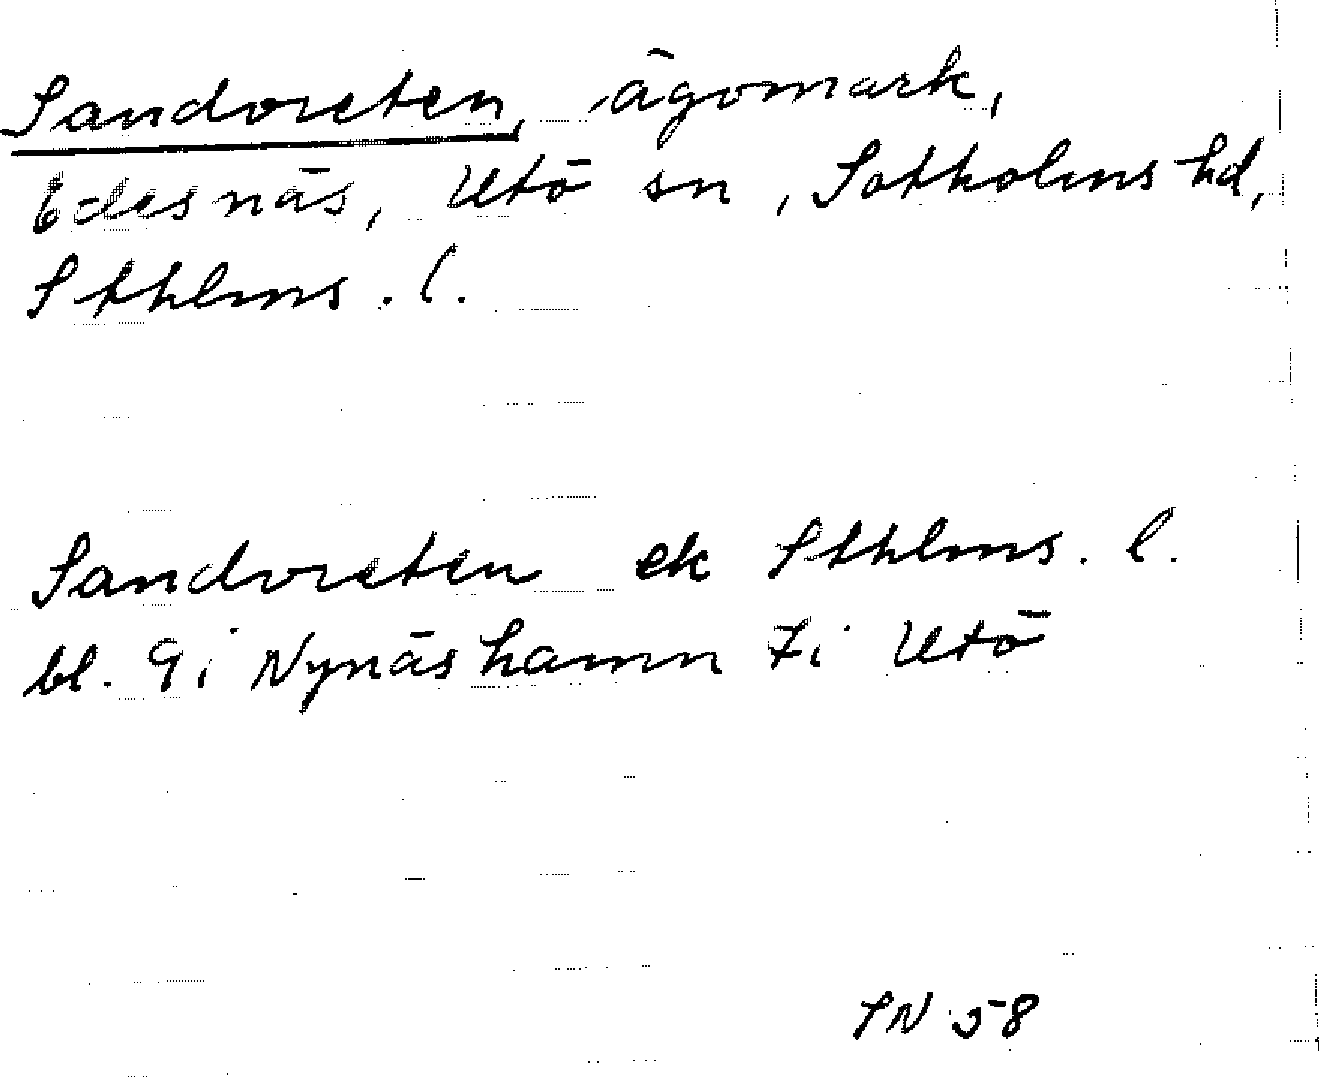 Sandvreten, ägomark,
Edesnäs, Utö sn, Sotholms hd,
Sthlms. l.
Sandvreten ek Sthlms. l.
bl. 9i Nynäshamn 7i Utö
SN 58